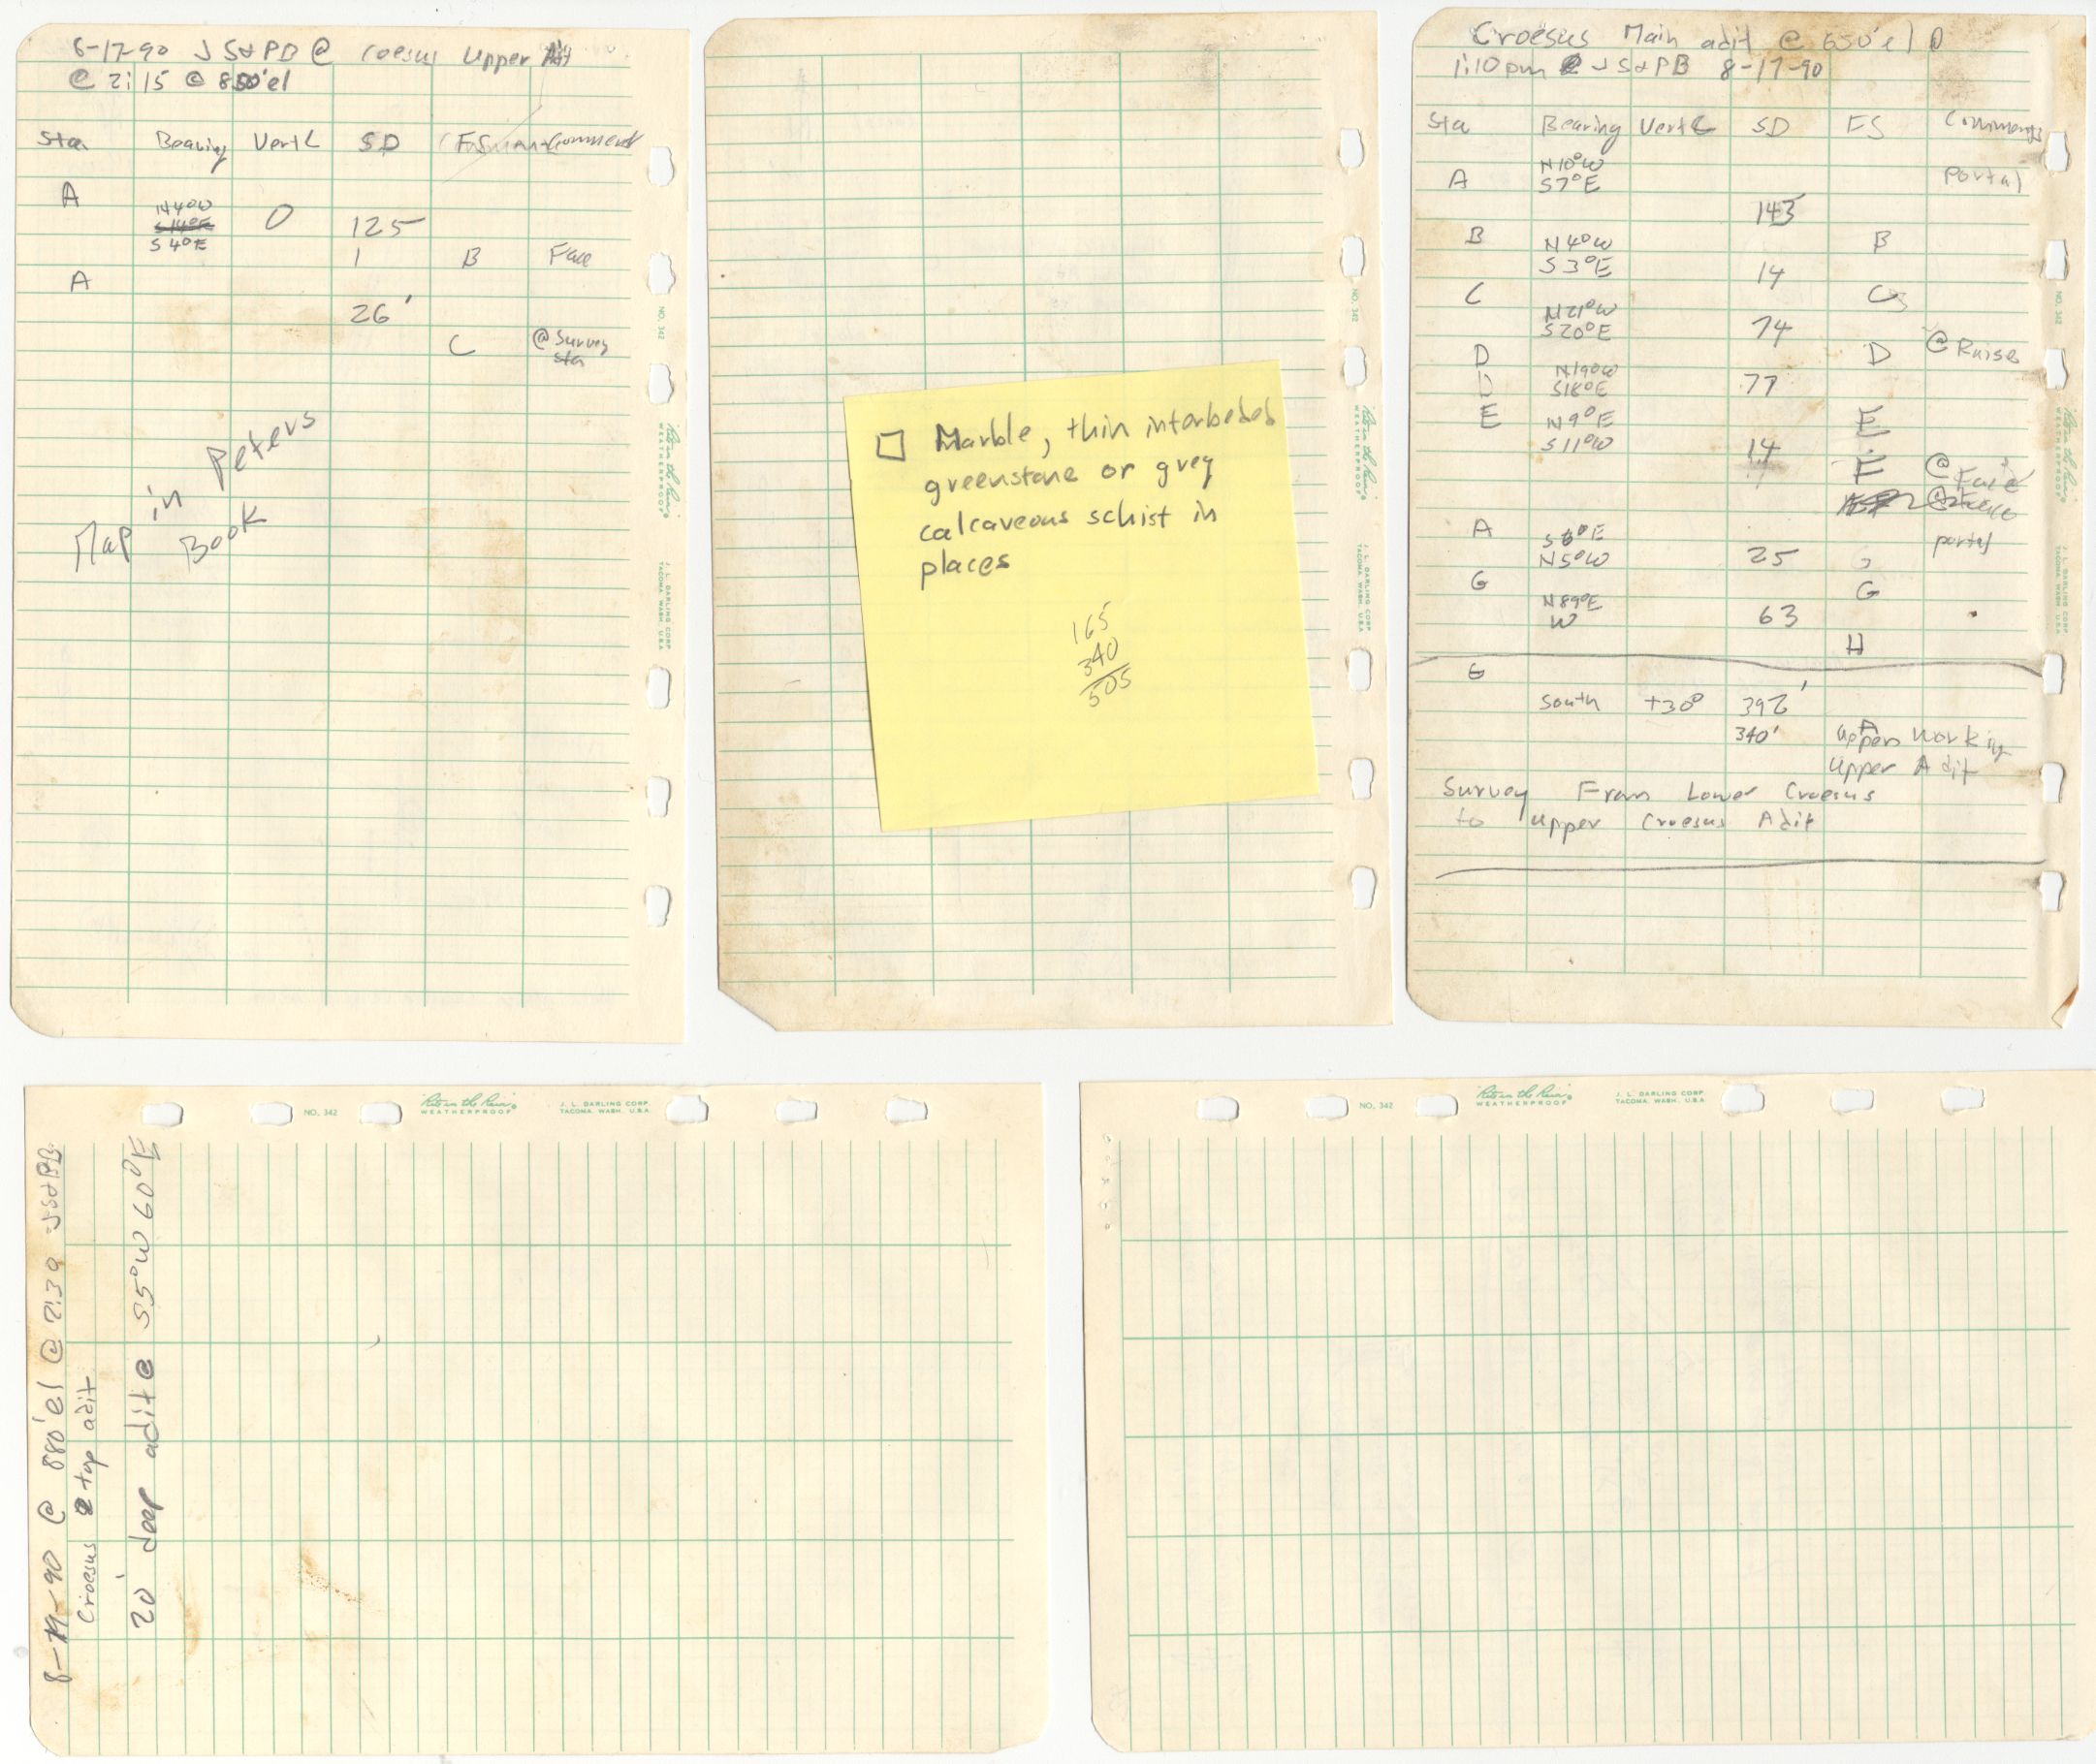 6-17-90 JS&PB @ Coesus Upper Adit
@ 2:15 @ 850'el
Sta Bearing Vert∠ SD FS Comment
A
N4°W
S4°E
0 125
1 B Face
A
26'
C @ Survey
Sta
Map in Peters
Book
NO. 342
Rite in the Rain
WEATHERPROOF
J. L. DARLING CORP.
TACOMA, WASH. U.S.A.
□ Marble, thin interbeded
greenstone or grey
calcaveous schist in
places
165
340
505
NO. 342
Rite in the Rain
WEATHERPROOF
J. L. DARLING CORP.
TACOMA, WASH. U.S.A.
Croesus Main adit @ 650'el
1:10pm JS&PB 8-17-90
Sta Bearing Vert∠ SD FS Comments
N10°W
A S7°E portal
143
B N4°W B
S3°E 14
C C
N21°W
S20°E 74
D D @ Raise
N19°W
D S18°E 77
E N9°E E
S11°W 14
F @ Face
A S6°E portal
N5°W 25
G G
N89°E
W 63
H
G
South +30° 392'
340' A
Upper Working
Upper Adit
Survey From Lower Croesus
to Upper Croesus Adit
NO. 342
Rite in the Rain
WEATHERPROOF
J. L. DARLING CORP.
TACOMA, WASH. U.S.A.
NO. 342
Rite in the Rain
WEATHERPROOF
J. L. DARLING CORP.
TACOMA, WASH. U.S.A.
8-19-90 @ 880'el @ 2:39 JS&PB
Croesus top adit
20' deep adit @ S5°W 60°E
NO. 342
Rite in the Rain
WEATHERPROOF
J. L. DARLING CORP.
TACOMA, WASH. U.S.A.